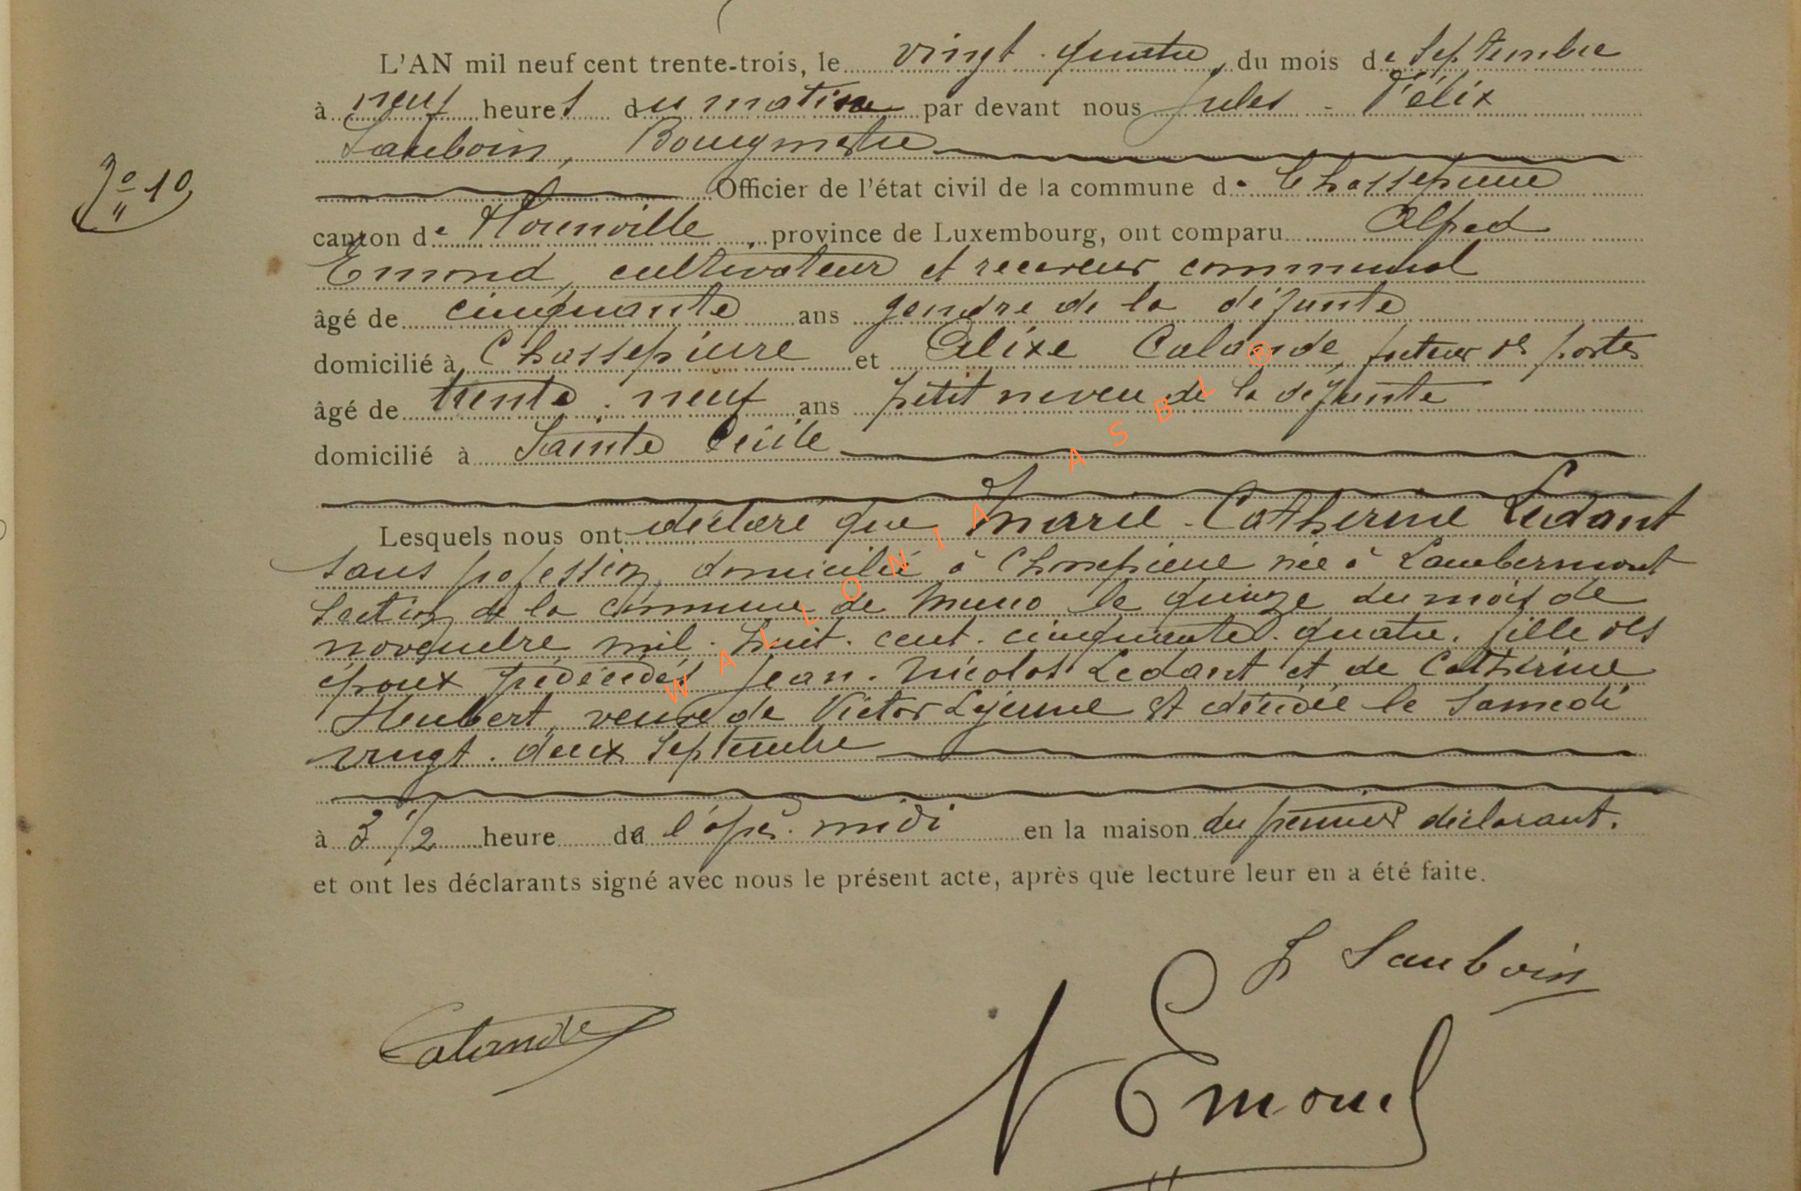 L'AN mil neuf cent trente-trois, le vingt-quatre, du mois de Septembre
à neuf heures du matin par devant nous Jules-Félix
Sauboin, Bourgmestre
N° 10
Officier de l'état civil de la commune de Chassepierre
canton de Florenville, province de Luxembourg, ont comparu Alfred
Emond, cultivateur et receveur communal
âgé de cinquante ans gendre de la défunte
domicilié à Chassepierre et Alixe Calande, facteur des postes
âgé de trente-neuf ans petit neveu de la défunte
domicilié à Sainte Cécile
Lesquels nous ont déclaré que Marie-Catherine Ledant
sans profession, domiciliée à Chassepierre née à Lambermont
section de la commune de Muno le quinze du mois de
novembre mil-huit-cent-cinquante-quatre, fille des
époux prédécédés Jean-Nicolas Ledant et de Catherine
Heubert, veuve de Victor Lejeune est décédée le samedi
vingt-deux septembre
à 3 1/2 heure de l'après-midi en la maison du premier déclarant.
et ont les déclarants signé avec nous le présent acte, après que lecture leur en a été faite.
J Sauboin
Calande
Emond
WALLONIA ASBL ®